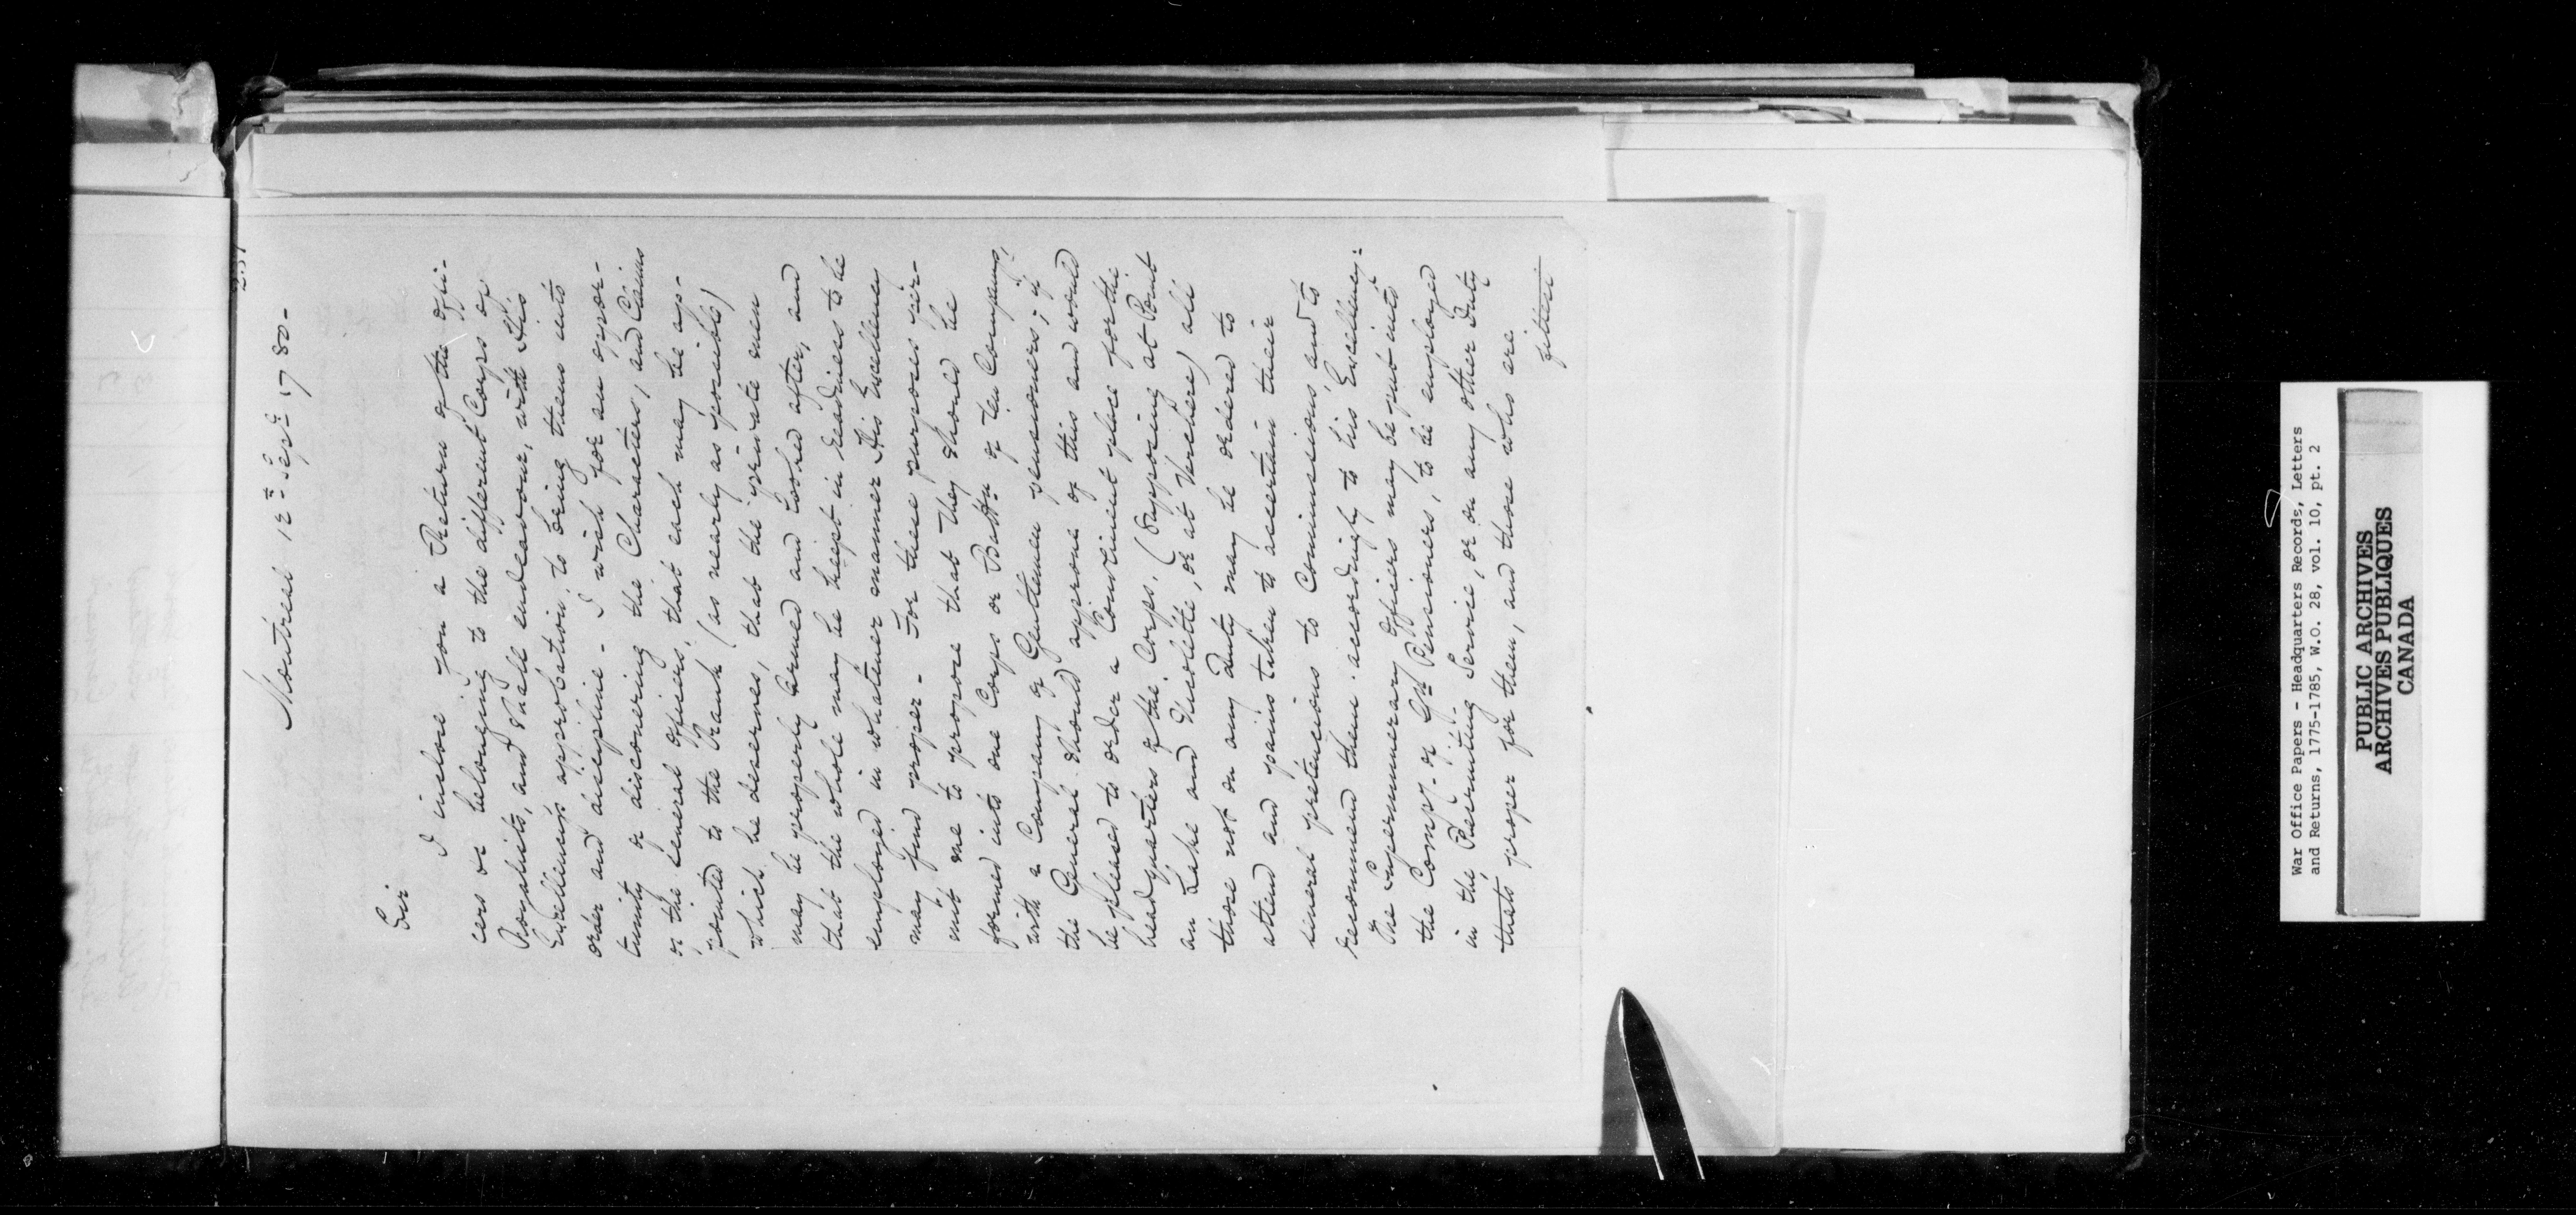 Montreal 12th Septr 1780-
Sir
I inclose you a Return of the offi-
cers as belonging to the different Corps of
Royalists, and shall endeavour, with His
Excellency's approbation, to bring them into
order and discipline - I wish for an oppor-
tunity of discovering the Characters, and Claims
of the several officers, that each may be ap-
pointed to the Rank (as nearly as possible)
which he deserves, that the private men
may be properly armed and looked after, and
that the whole may be kept in readiness to be
employed in whatever manner His Excellency
may find proper - For these purposes per-
mit me to propose that they should be
formed into one Corps or Battn of Ten Companys,
with a Company of Gentlemen pensioners; if
the General should approve of this and would
be pleased to order a Convenient place for the
head quarters of the Corps. (Supposing at Point
au Lake and Nicolette, or at Verchere) all
those not on any Duty may be ordered to
attend and pains taken to ascertain their
several pretencions to Commissions, and to
recommend them accordingly to his Excellency:
The Supernumerary officers may be put into
the Compy of Gn Pensioners, to be employed
in the Recruiting Service, or on any other Duty
thats proper for them, and those who are
fittest
War Office Papers - Headquarters Records, Letters
and Returns, 1775-1785, W.O. 28, vol. 10, pt. 2
PUBLIC ARCHIVES
ARCHIVES PUBLIQUES
CANADA